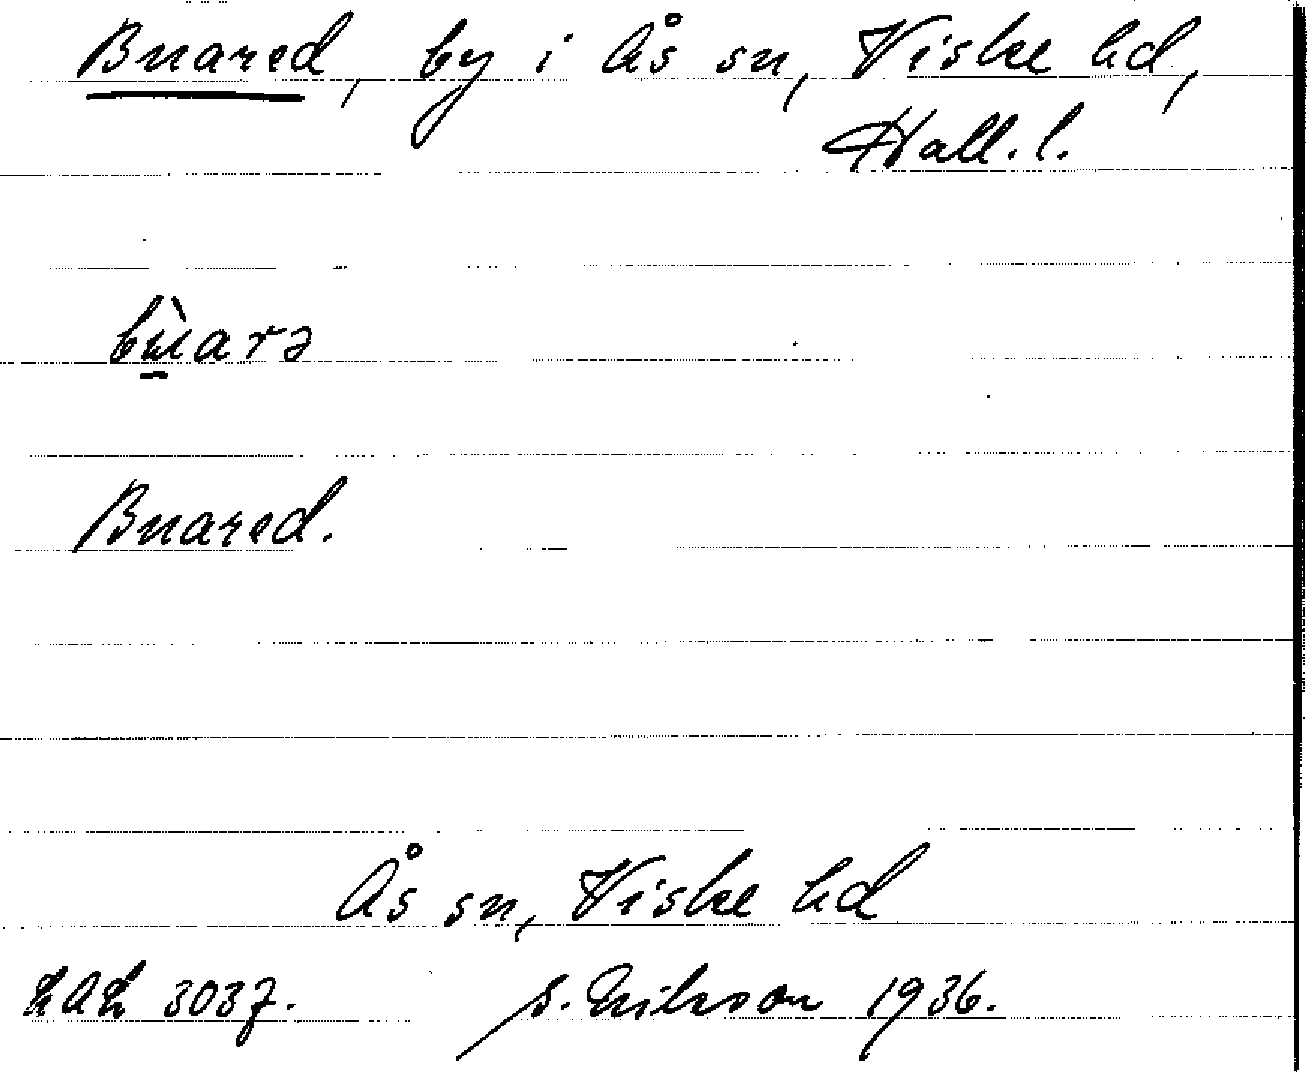 Buared, by i Ås sn, Viske hd,
Hall. l.
bù̱arə
Buared.
Ås sn, Viske hd
LAL 3037. S. Eriksson 1936.